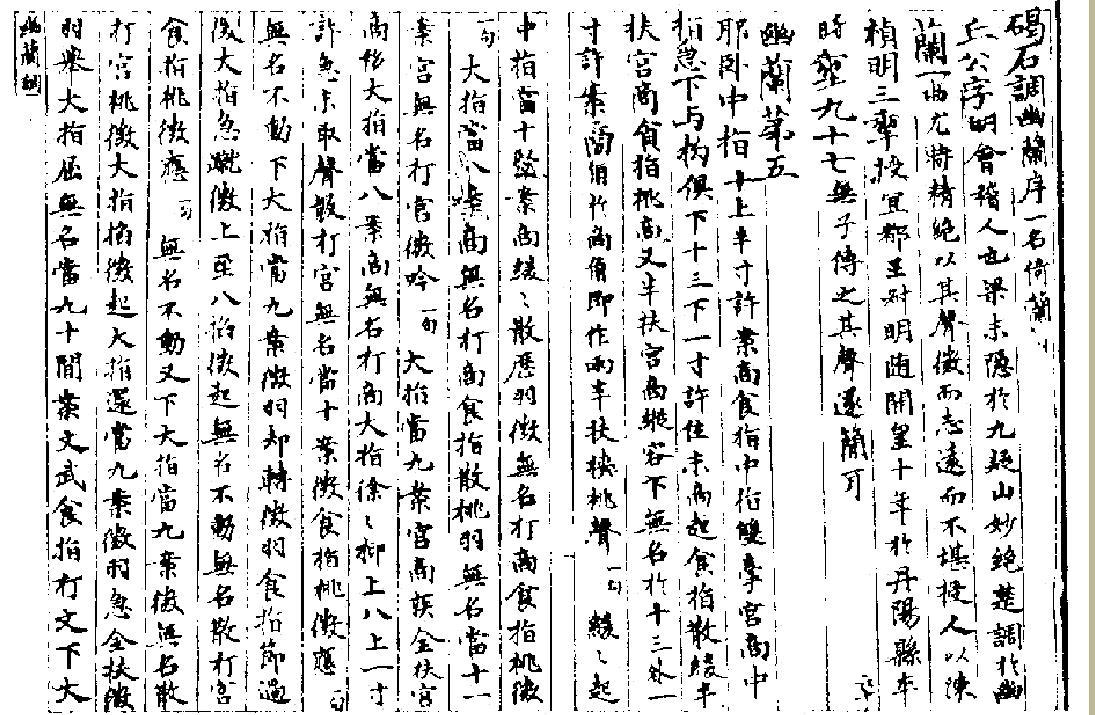 碣石調幽蘭序一名倚蘭
丘公字明會稽人也梁末隱於九疑山妙絕楚調於幽
蘭一曲尤特精絕以其聲微而志遠而不堪授人以陳
禎明三年授宜都王叔明隨開皇十年於丹陽縣卒
時年九十七無子傳之其聲遂簡耳
幽蘭第五
耶臥中指十上半寸許案商食指中指雙牽宮商中
指急下与构俱下十三下一寸許住末商起食指散緩半
扶宮商食指挑商又半扶宮商縱容下無名於十三外一
寸許案商角於商角即作兩半扶挾挑聲一句 緩緩起
中指當十案商緩緩散歷羽徵無名打商食指挑徵
一句 大指當八案商無名打商食指散挑羽無名當十一
案宮無名打宮徵吟一句 大指當九案宮商疾全扶宮
商移大指當八案商無名打商大指徐徐抑上八上一寸
許急末取聲散打宮無名當十案徵食指挑徵應一句
無名不動下大指當九案徵羽却轉徵羽食指節過
徵大指急蹴徵上至八掐徵起無名不動無名散打宮
食指挑徵應一句 無名不動又下大指當九案徵無名散
打宮挑徵大指掐徵起大指還當九案徵羽急全扶徵
羽舉大指屈無名當九十間案文武食指打文下大
幽蘭調